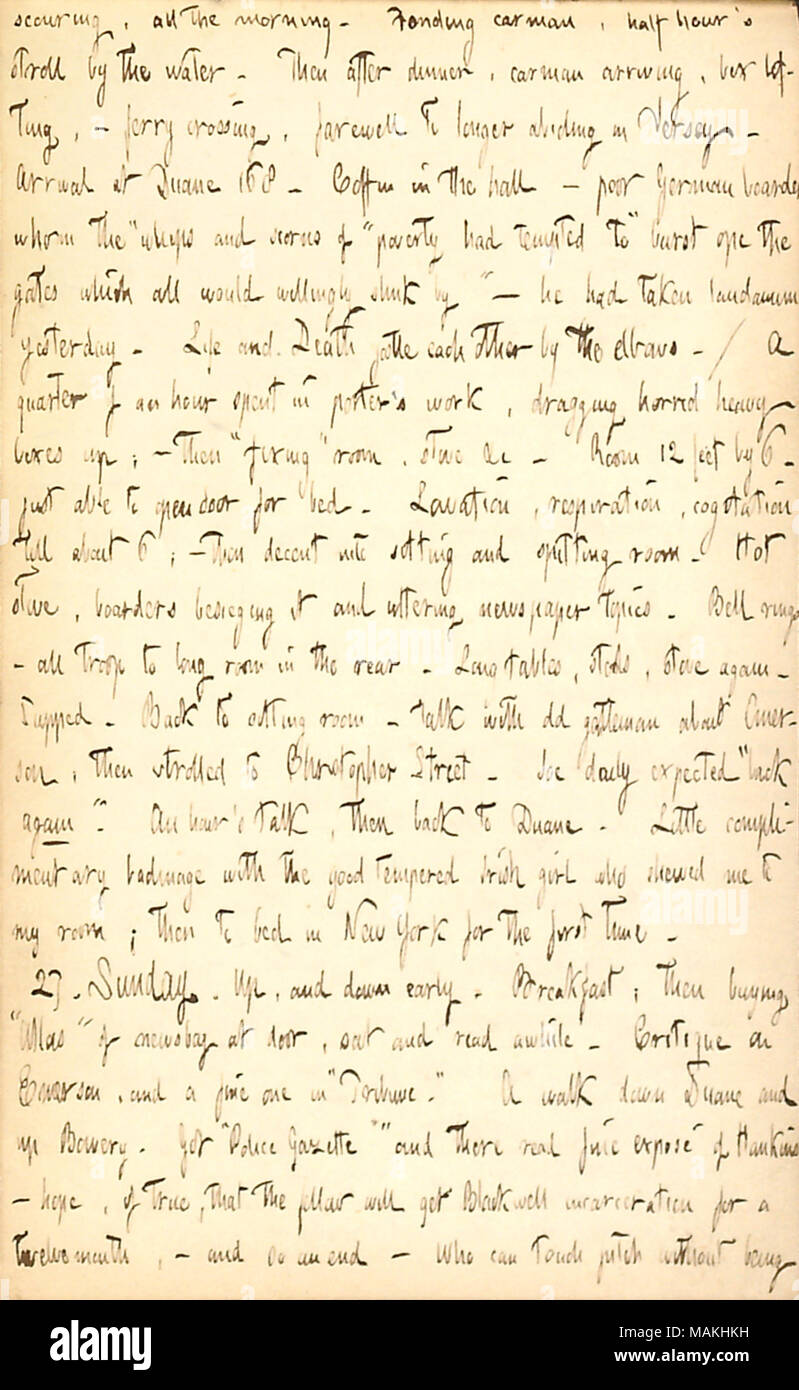 scouring, all the morning. Finding carman, half hour's
stroll by the water. Then after dinner, carman arriving, box lof-
ting, - ferry crossing, farewell to longer abiding in Jersey. -
Arrival at Duane 168 - Coffin in the hall - poor German boarder
whom the "whips and scorns of "poverty had tempted to "burst ope the
gates which all would willingly slink by" - he had taken laudanum
yesterday. Life and Death jostle each other by the elbows - / A
quarter of an hour spent in porter's work, dragging horrid heavy
boxes up; - then "fixing" room, stove &c - Room 12 feet by 6 -
just able to open door for bed - Lavation, respiration, cogitation
till about 6; - then decent into sitting and spitting room. Hot
stove, boarders besieging it and uttering newspaper topics. Bell rings
- all troop to long room in the rear - Long tables, stools, stove again -
Supped. Back to sitting room - talk with old gentleman about Emer-
son, then strolled to Christopher Street. Joe daily expected "back
again". An hour's talk, then back to Duane. Little compli-
mentary badinage with the good tempered Irish girl who shewed me to
my room; then to bed in New York for the first time -
27. Sunday. Up, and down early. Breakfast; then buying
"Atlas" of newsboy at door, sat and read awhile - Critique on
Emerson, and a fine one in "Tribune." A walk down Duane and
up Bowery. Got "Police Gazette" and there read fine exposé of Hankins
- hope, if true, that the fellow will get Blackwell incarceration for a
twelvemonth, - and so an end - Who can touch pitch without being
alamy
Image ID: MAKHKH
www.alamy.com